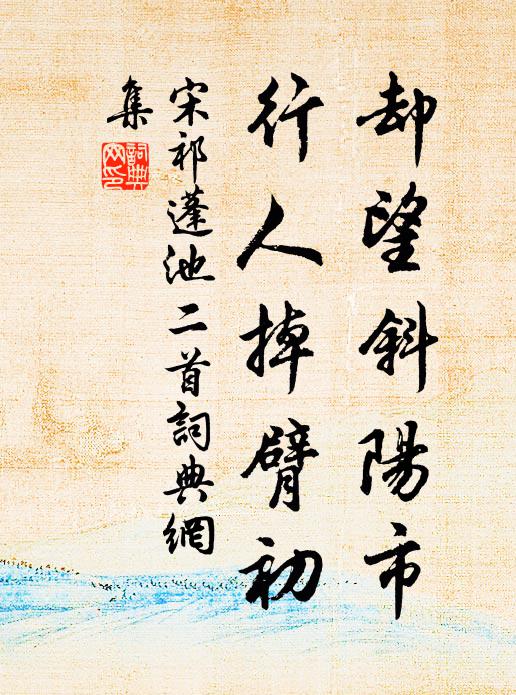 却望斜陽市
行人掉臂初
宋祁蓬池二首詞典網
集
詞典網印